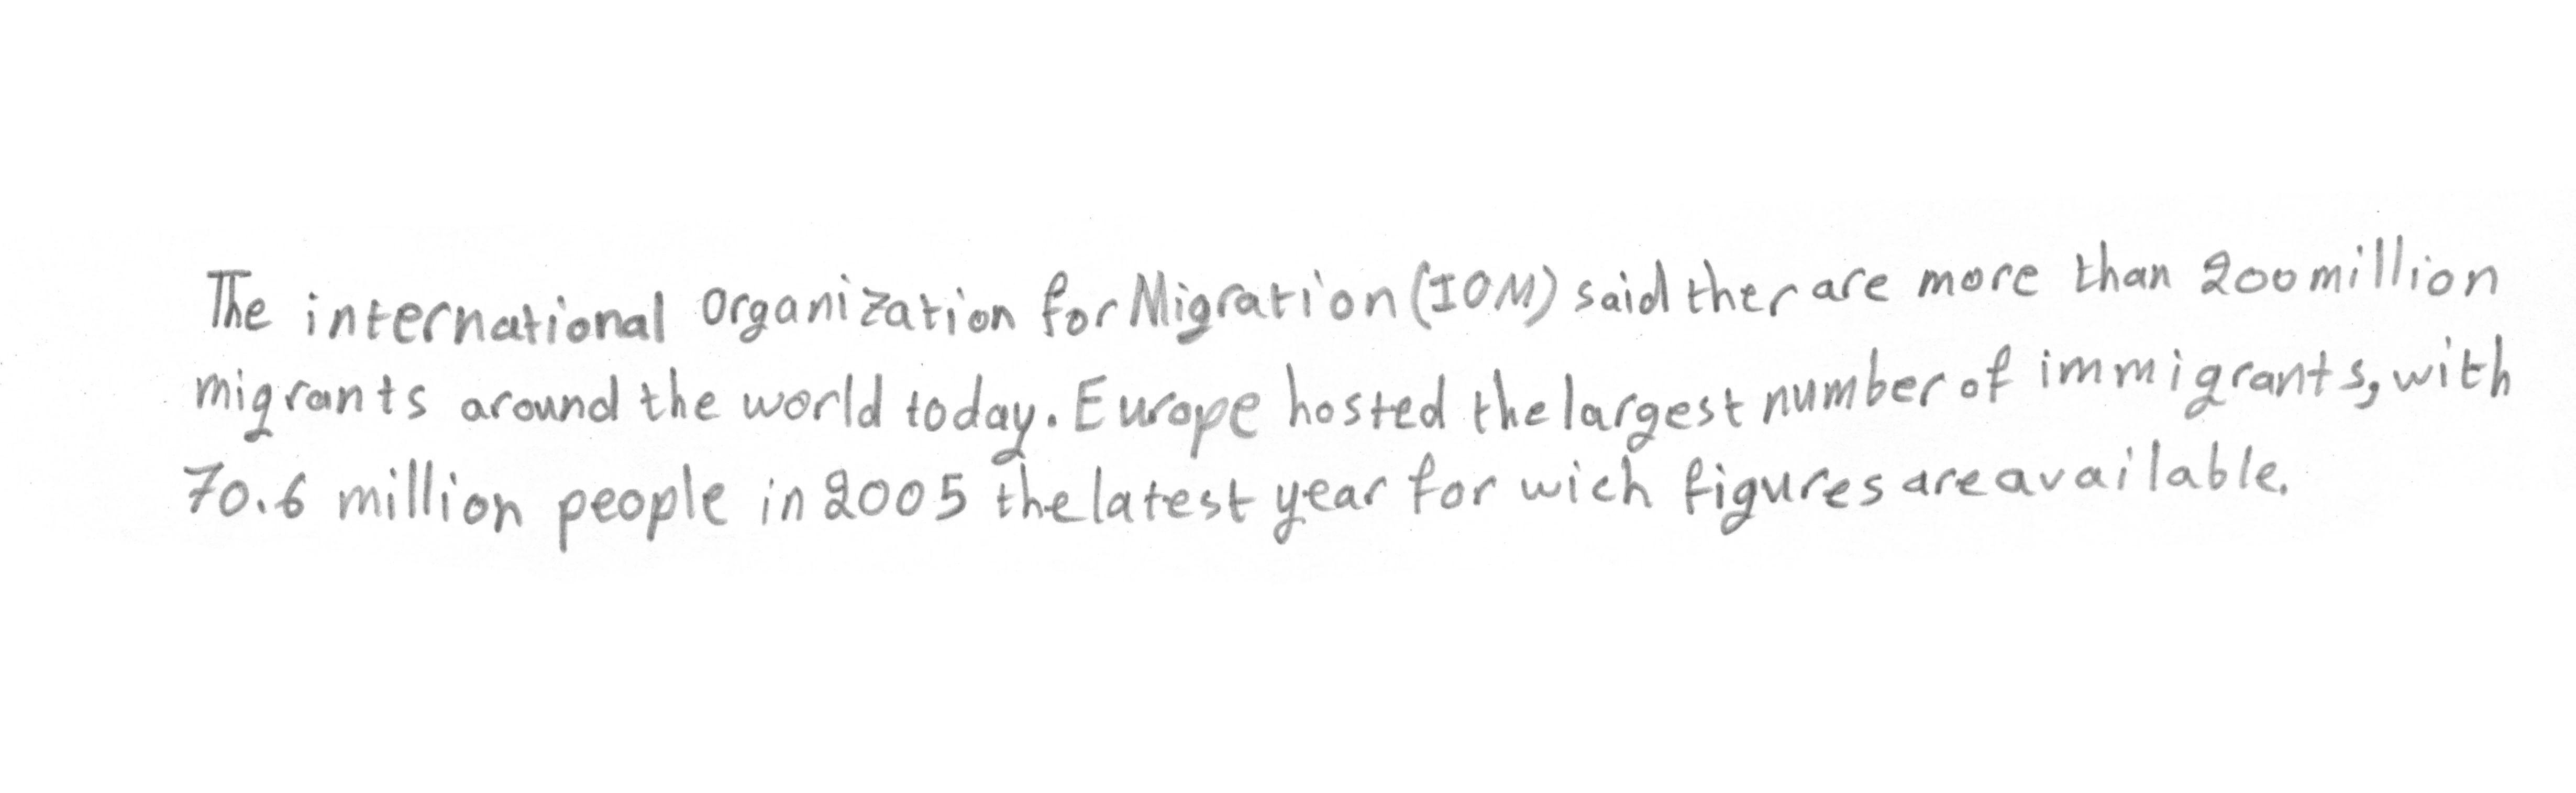 The international organization for Migration (IOM) said ther are more than 200 million
migrants around the world today. Europe hosted the largest number of immigrants, with
70.6 million people in 2005 the latest year for wich figures are available.